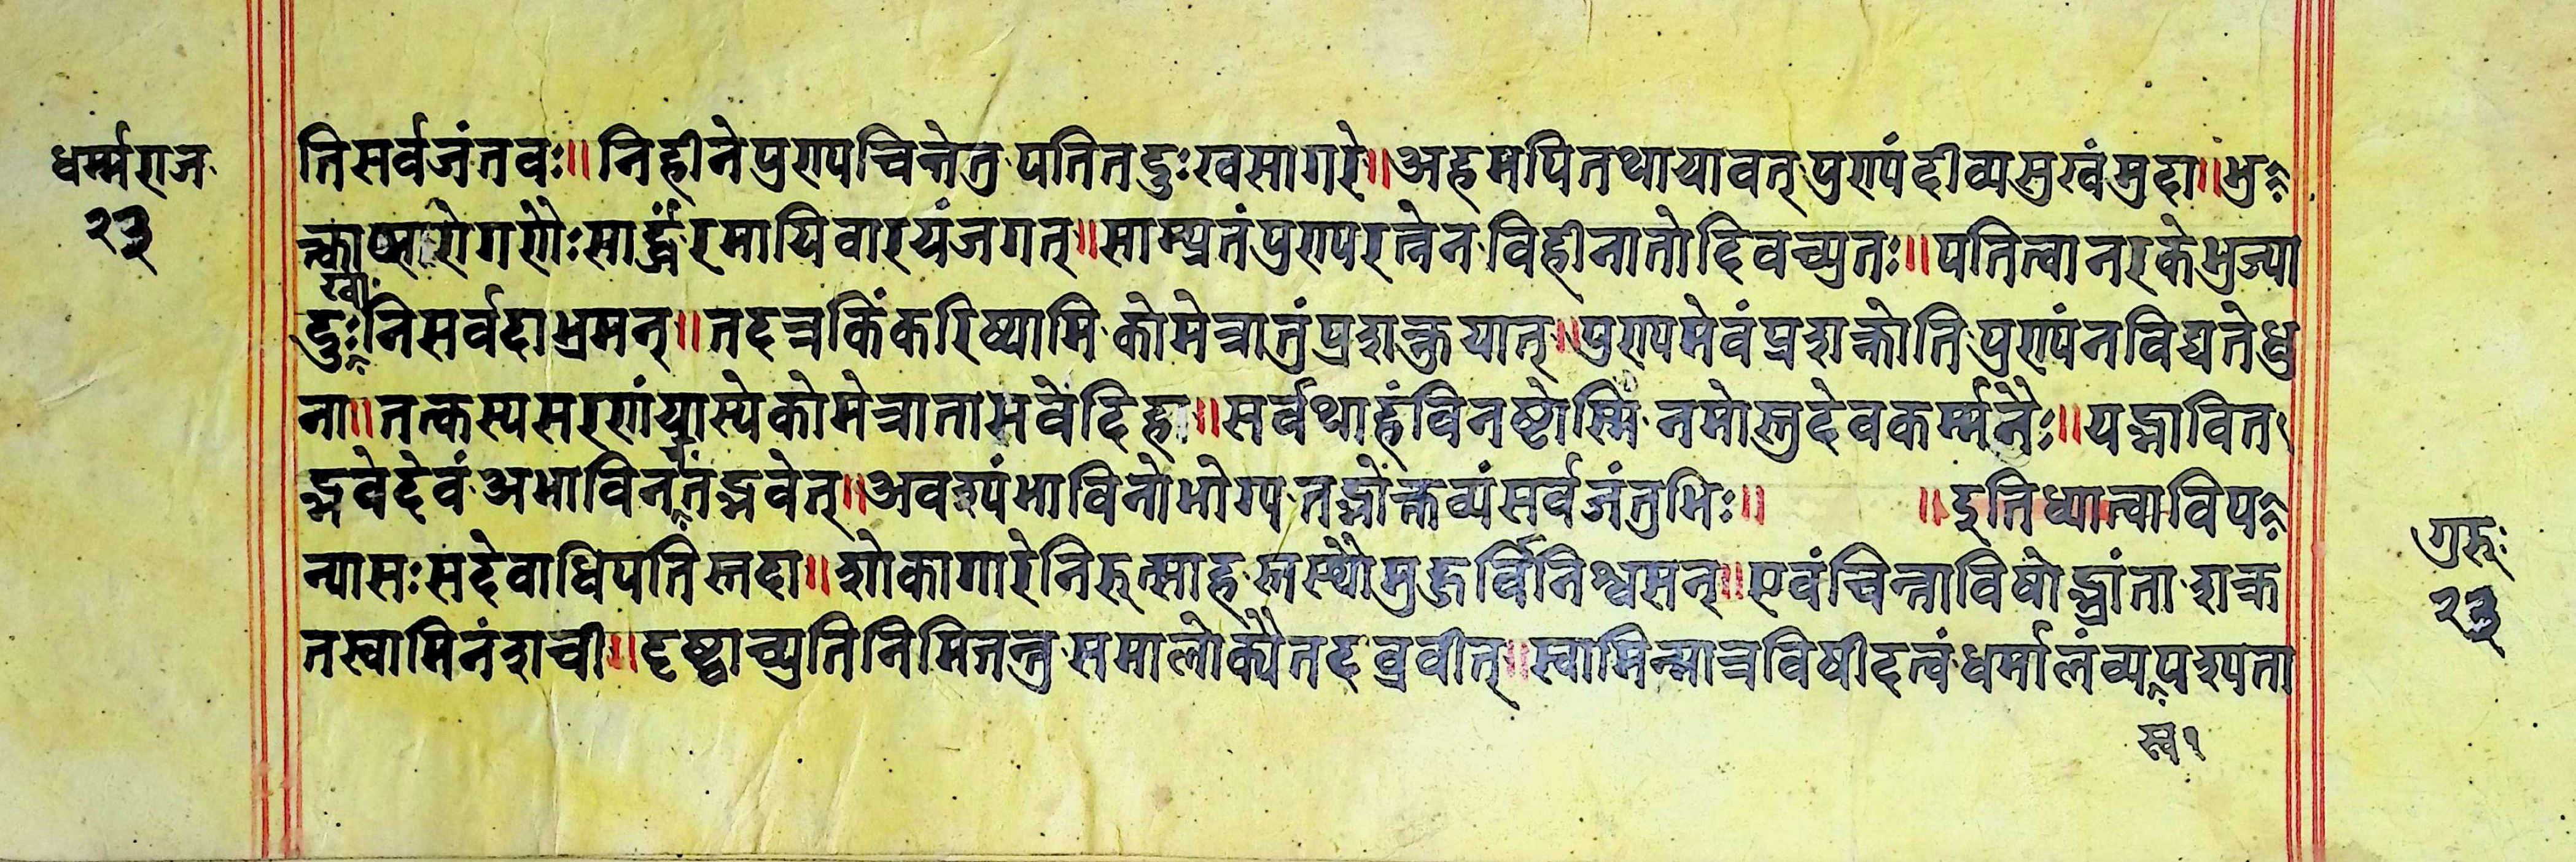 धर्म्मराज
२३
तिसर्वजंतवः॥निहीनेपुण्यचिन्तेतु पतितदुःखसागरे॥अहमपितथायावत् पुण्यंदीव्यसुखंमुदा॥भु
त्काप्सरोगणैःसार्द्धंरमायिवारयंजगत्॥साम्प्रतंपुण्यरत्नेन विहीनातोदिवच्युतः॥पतित्वानरकेभुज्या
खा
दुःनिसर्वदाभ्रमन्॥तदत्रकिंकरिष्यामि कोमेत्रातुंप्रशक्तुयात्॥पुण्यमेवंप्रशक्नोति पुण्यंनविद्यतेधु
ना॥तत्कस्यसरणांयास्येकोमेत्रातासवेदिहा॥सर्वथाहंविनष्टोस्मि नमोस्तुदेवकर्म्मनैः॥यद्भावित
द्भवेदेवं अभाविनतंद्भवेत्॥अवश्यंभाविनोभोग्य तद्भोक्तव्यंसर्वजंतुभिः॥ ॥इतिध्यात्वाविप
न्यासःसदेवाधिपतिस्तदा॥शोकागारेनिरुत्साह स्तस्थौमुहुर्विनिश्वसन्॥एवंचिन्ताविषोद्भ्रांता शक्र
तस्वामिनंशची॥दृष्ट्वाच्युतिनिमिजन्तु समालोक्यैतदब्रवीत्॥स्वामिन्मात्रविषीदत्वंधर्मालंव्यपश्यता
स्व१
गुरुः
२३